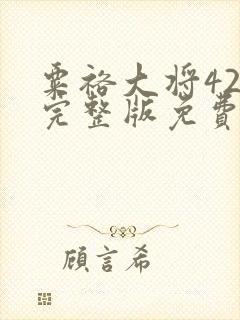 粟裕大将42
完整版免费
顾言希